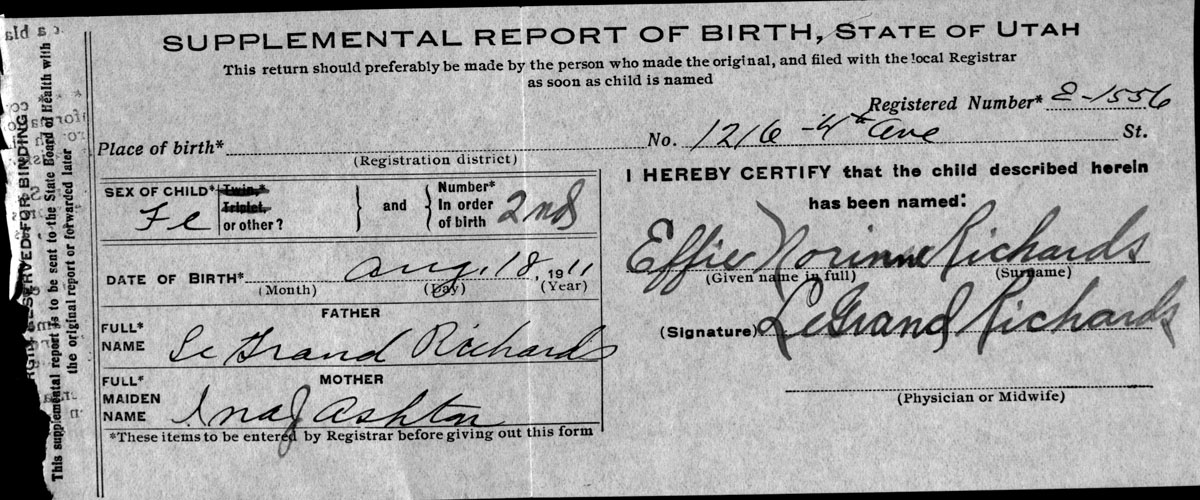 SUPPLEMENTAL REPORT OF BIRTH, STATE OF UTAH
This return should preferably be made by the person who made the original, and filed with the local Registrar
as soon as child is named
Registered Number* 2-1556
Place of birth* No. 1216 - 4th Ave St.
(Registration district)
SEX OF CHILD* Fe
Twin,*
Triplet,
or other?
and
Number*
In order
of birth
2nd
DATE OF BIRTH* Aug. 18, 1911
(Month) (Day) (Year)
FATHER
FULL*
NAME Le Grand Richards
MOTHER
FULL*
MAIDEN
NAME Ina J Ashton
*These items to be entered by Registrar before giving out this form
I HEREBY CERTIFY that the child described herein
has been named:
Effie Norinne Richards
(Given name in full) (Surname)
(Signature) LeGrand Richards
(Physician or Midwife)
RESERVED FOR BINDING
This supplemental report is to be sent to the State Board of Health with
the original report or forwarded later